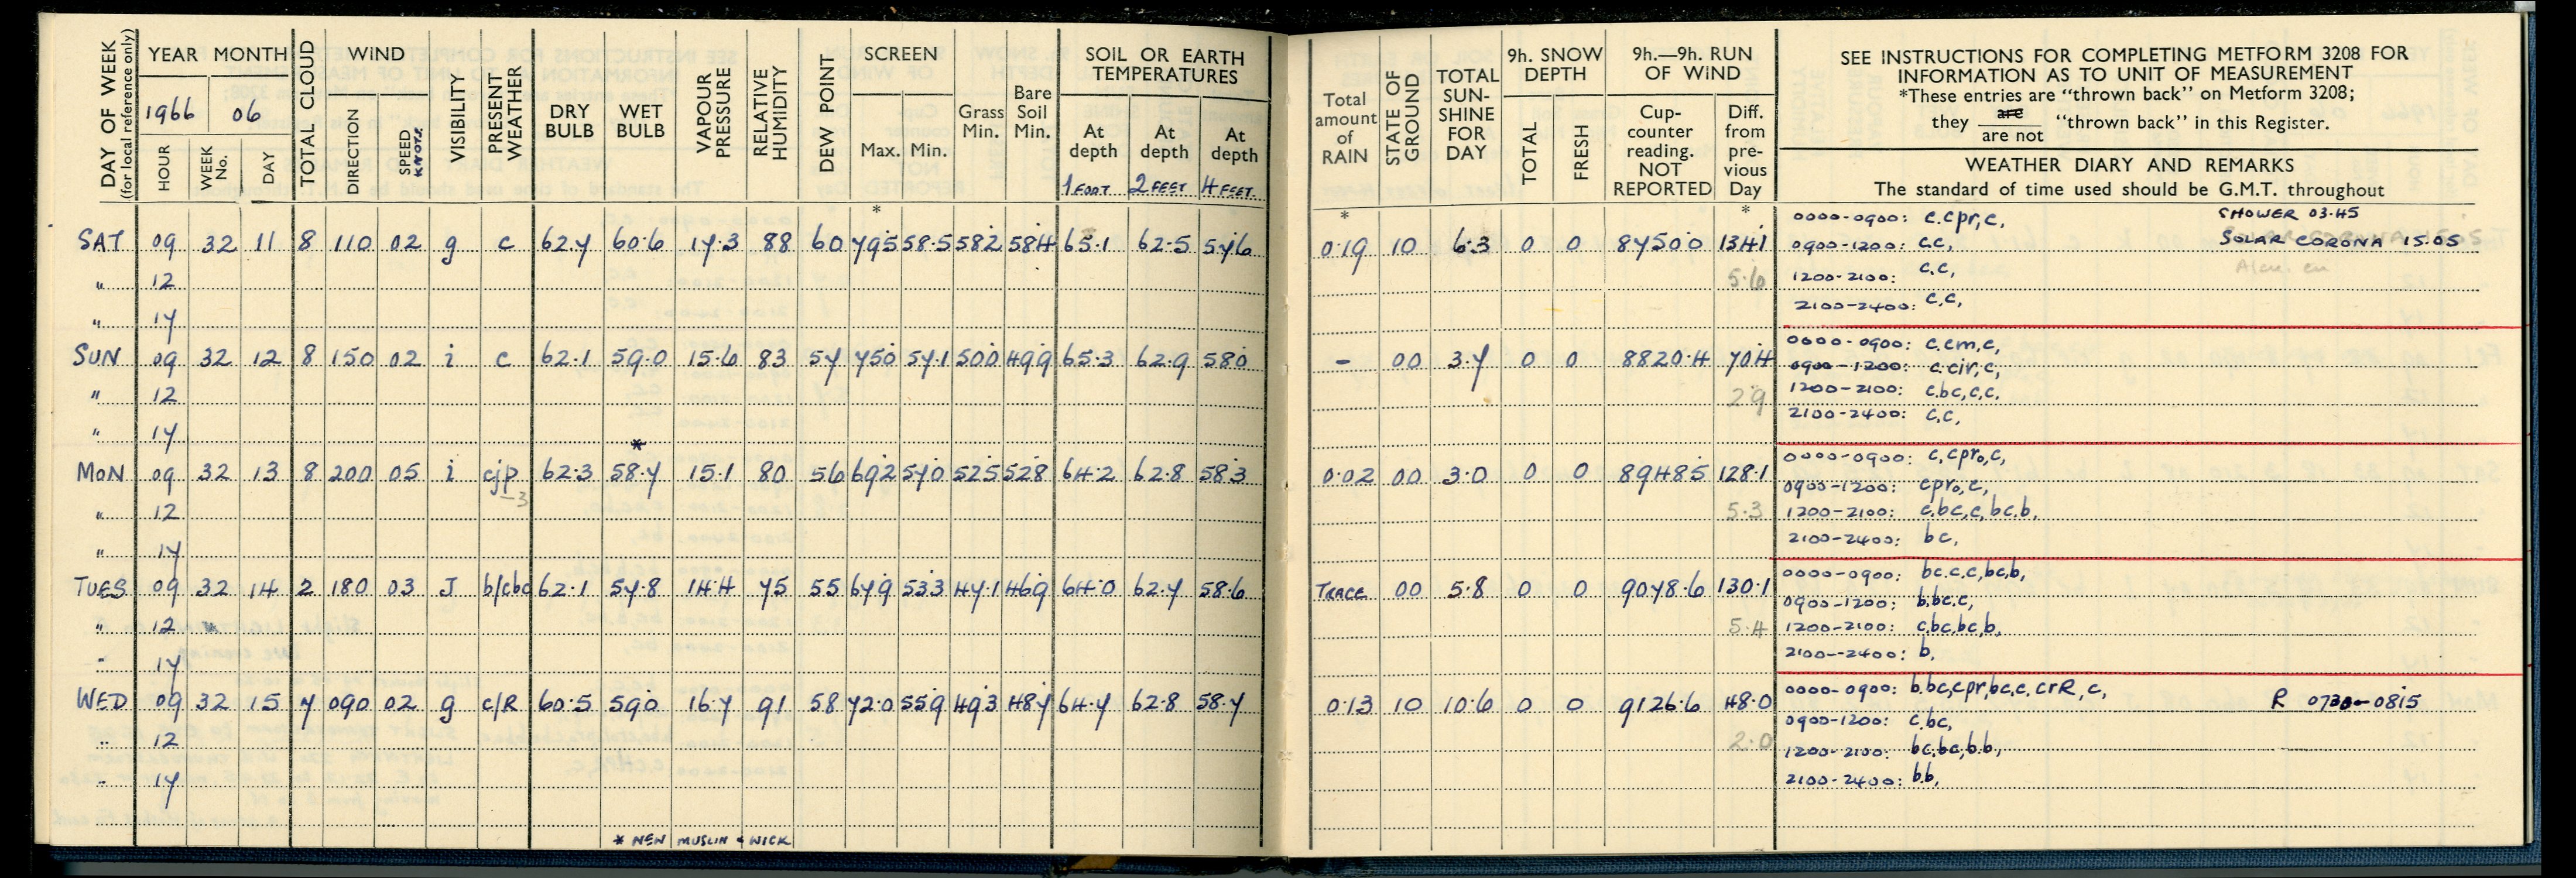 DAY OF WEEK
(for local reference only)
YEAR MONTH
1966 06
HOUR
WEEK No.
DAY
TOTAL CLOUD
WIND
DIRECTION
SPEED
KNOTS
VISIBILITY
PRESENT WEATHER
DRY BULB
WET BULB
VAPOUR PRESSURE
RELATIVE HUMIDITY
DEW POINT
SCREEN
Max. Min.
Grass Min.
Bare Soil Min.
SOIL OR EARTH TEMPERATURES
At depth At depth At depth
1 FOOT 2 FEET 4 FEET
*
SAT 09 32 11 8 110 02 g c 62.7 60.6 17.3 88 60 79.5 58.5 58.2 58.4 65.1 62.5 57.6
" 12
" 17
SUN 09 32 12 8 150 02 i c 62.1 59.0 15.6 83 57 75.0 57.1 50.0 49.9 65.3 62.9 58.0
" 12
" 17
*
MON 09 32 13 8 200 05 i cjp 62.3 58.7 15.1 80 56 69.2 57.0 52.5 52.8 64.2 62.8 58.3
-3
" 12
" 17
TUES 09 32 14 2 180 03 J b/cbc 62.1 57.8 14.4 75 55 67.9 53.3 47.1 46.9 64.0 62.7 58.6
" 12
" 17
WED 09 32 15 7 090 02 g c/R 60.5 59.0 16.7 91 58 72.0 55.9 49.3 48.7 64.7 62.8 58.7
" 12
" 17
* NEW MUSLIN & WICK
Total amount of RAIN
STATE OF GROUND
TOTAL SUN-SHINE FOR DAY
9h. SNOW DEPTH
TOTAL
FRESH
9h.—9h. RUN OF WIND
Cup-counter reading. NOT REPORTED
Diff. from pre-vious Day
SEE INSTRUCTIONS FOR COMPLETING METFORM 3208 FOR
INFORMATION AS TO UNIT OF MEASUREMENT
*These entries are "thrown back" on Metform 3208;
they are / are not "thrown back" in this Register.
WEATHER DIARY AND REMARKS
The standard of time used should be G.M.T. throughout
* *
0.19 10 6.3 0 0 8750.0 134.1
5.6
0000-0900: c.cpr,c, SHOWER 03.45
0900-1200: c.c, SOLAR CORONA 15.05
1200-2100: c,c,
2100-2400: c,c,
- 00 3.7 0 0 8820.4 70.4
2.9
0000-0900: c.cm,c,
0900-1200: c.cir,c,
1200-2100: c.bc,c,c,
2100-2400: c,c,
0.02 00 3.0 0 0 8948.5 128.1
5.3
0000-0900: c,cpro,c,
0900-1200: cpro,c,
1200-2100: c,bc,c,bc,b,
2100-2400: bc,
TRACE 00 5.8 0 0 9078.6 130.1
5.4
0000-0900: bc.c.c,bc,b,
0900-1200: b.bc.c,
1200-2100: c,bc,bc,b,
2100-2400: b,
0.13 10 10.6 0 0 9126.6 48.0
2.0
0000-0900: b.bc,cpr,bc,c,crR,c, R 0730-0815
0900-1200: c,bc,
1200-2100: bc,bc,b.b,
2100-2400: b.b,